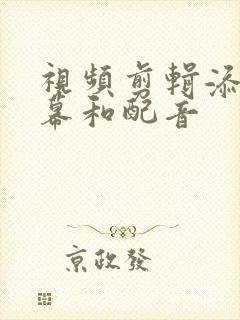 視頻剪輯添
幕和配音
京政發